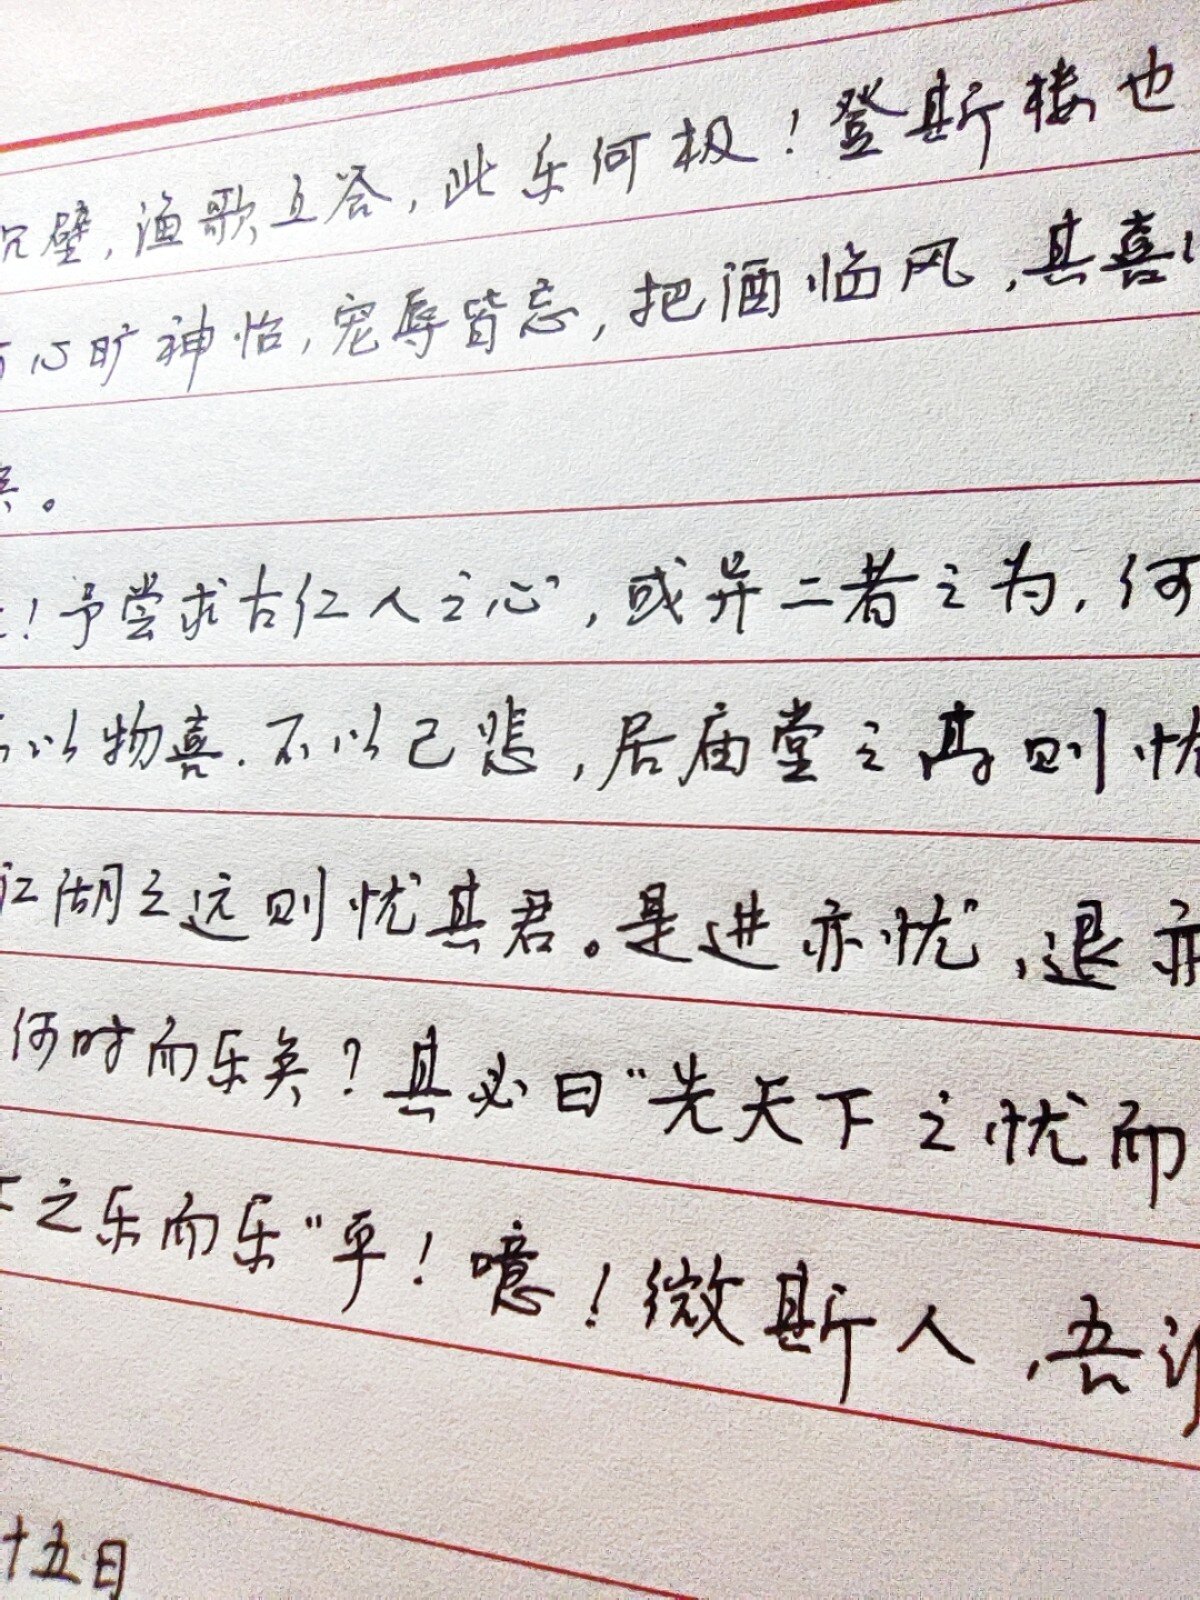 沉璧，渔歌互答，此乐何极！登斯楼也
心旷神怡，宠辱皆忘，把酒临风，其喜
矣。
！予尝求古仁人之心，或异二者之为，何
不以物喜．不以己悲，居庙堂之高则忧
江湖之远则忧其君。是进亦忧，退亦
何时而乐矣？其必曰“先天下之忧而
下之乐而乐”乎！噫！微斯人，吾谁
十五日